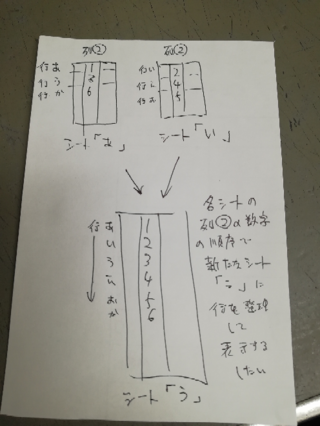 列②
行あ 1
行う 3
行か 6
シート「あ」
列②
行い 2
行え 4
行お 5
シート「い」
行 あ 1
い 2
う 3
え 4
お 5
か 6
シート「う」
各シートの
列②の数字
の順序で
新たなシート
「う」に
行を整理
して
表示する
したい